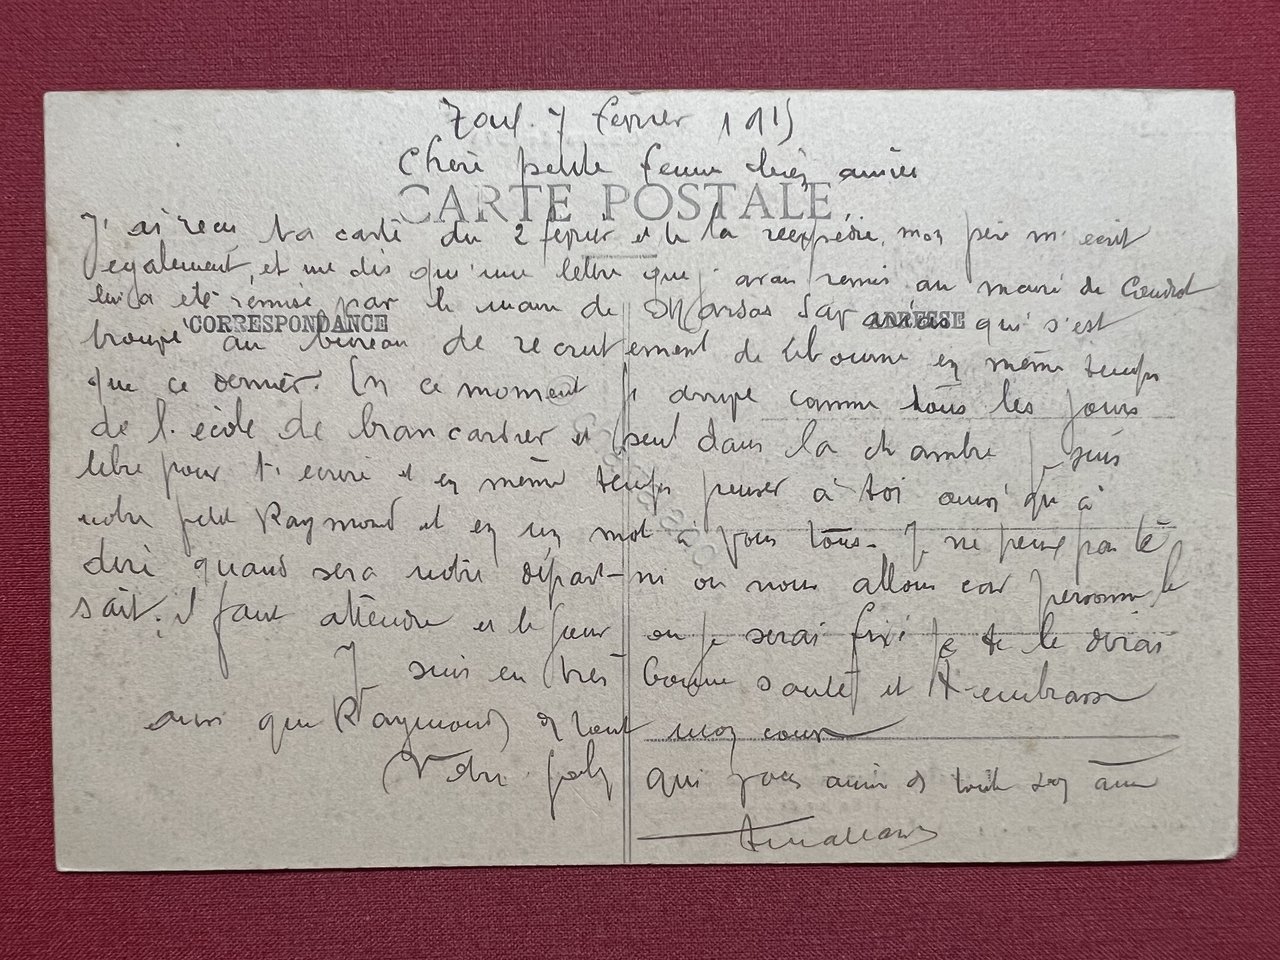 Toul. 7 février 1915
Chère petite femme bien aimée
CARTE POSTALE
J'ai reçu ta carte du 2 février et te la réexpédie, mon père m'écrit
également, et me dis qu'une lettre que j'avais remis au maire de
lui a été remise par le maire de Marsas qui s'est
CORRESPONDANCE
ADRESSE
trouvé au bureau de recrutement de Libourne en même temps
que ce dernier. En ce moment j'arrive comme tous les jours
de l'école de brancardier et seul dans la chambre je suis
libre pour t'écrire et en même temps penser à toi aussi qu'à
notre petit Raymond et en un mot à vous tous. Je ne peux pas te
dire quand sera notre départ ni ou nous allons car personne le
sait, il faut attendre et le jour ou je serai fixé je te le dirai
Je suis en très bonne santé et t'embrasse
ainsi que Raymond de tout mon cœur
Votre qui vous aime de toute son âme